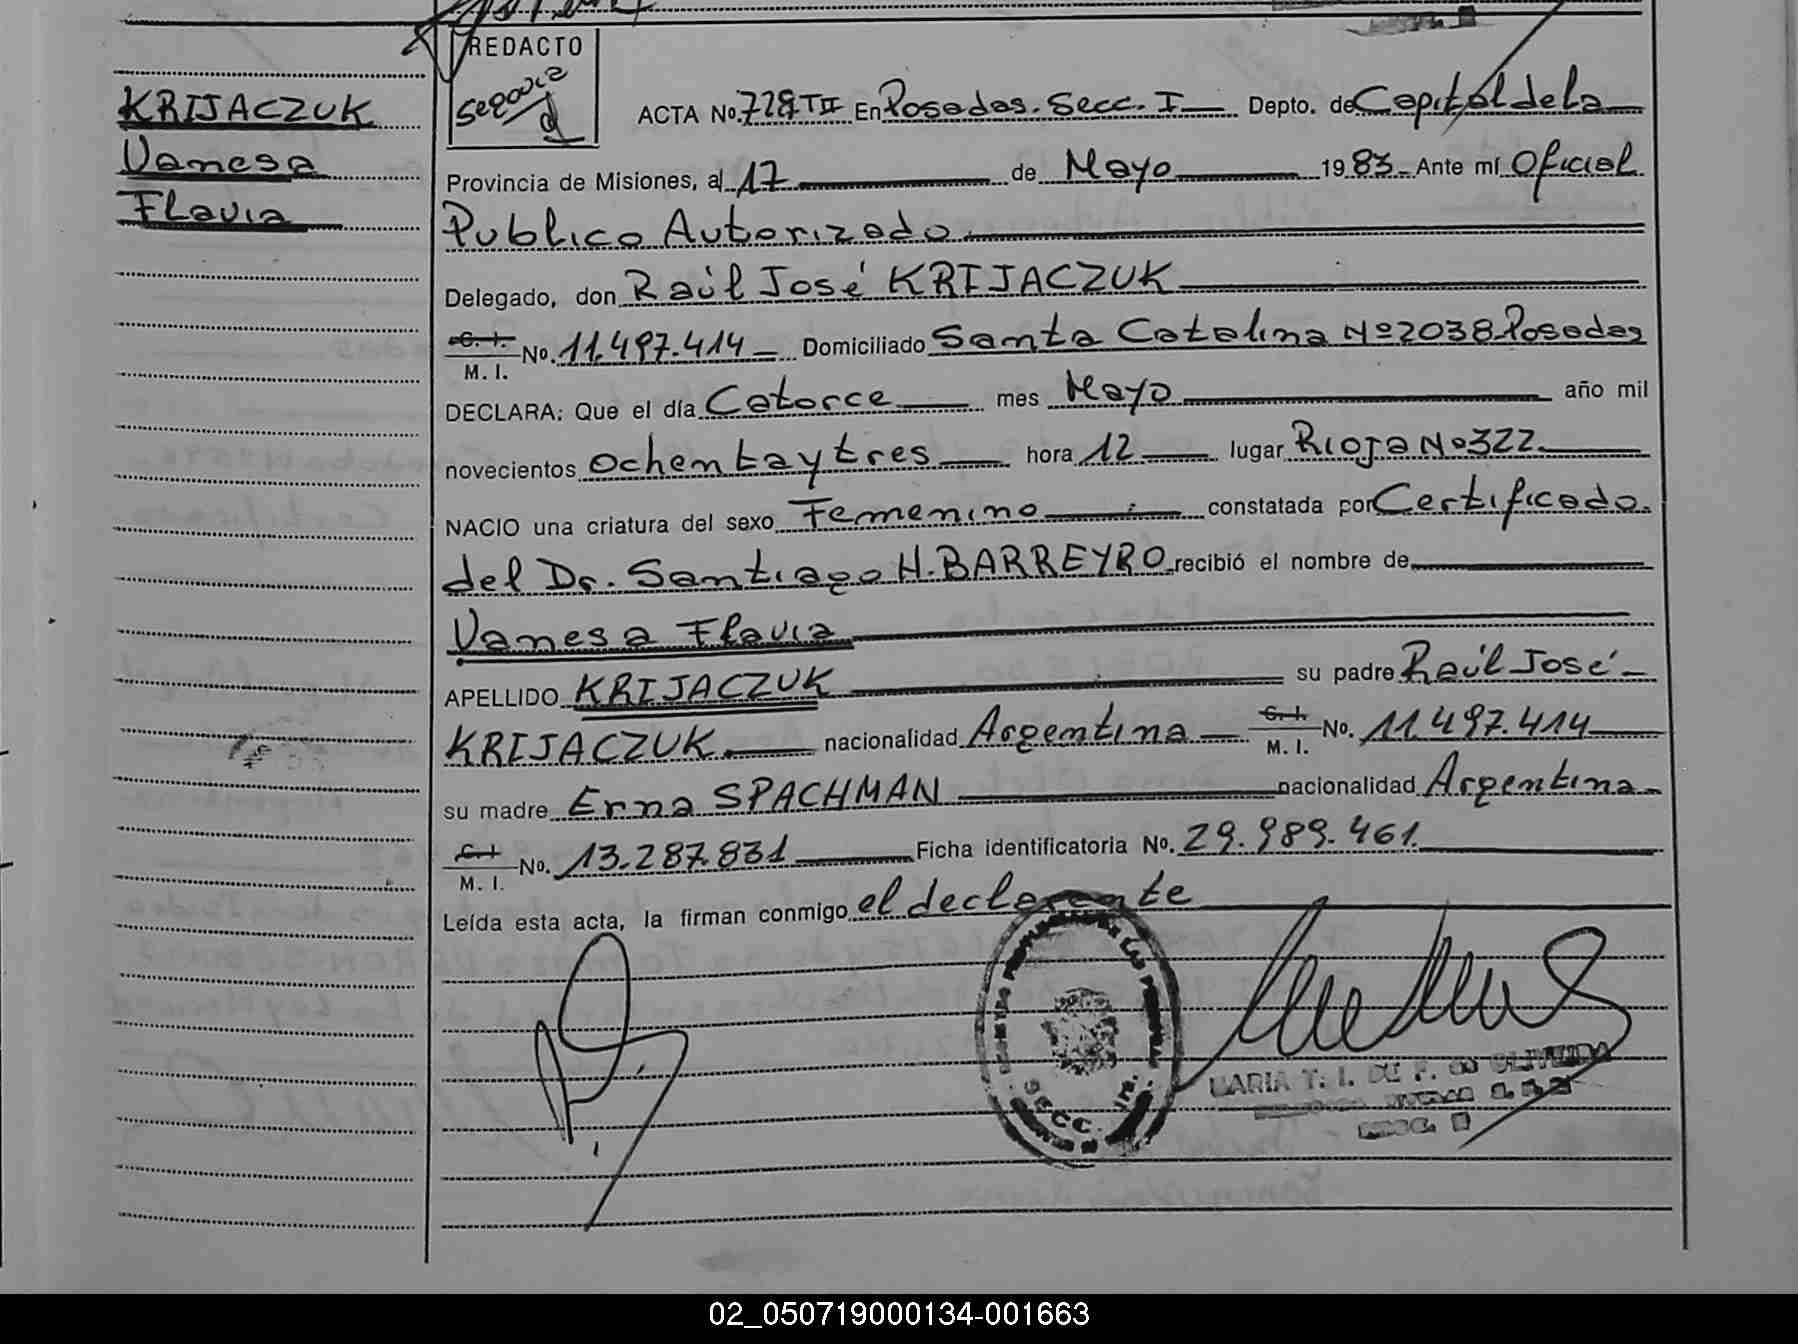 REDACTO
KRIJACZUK
Vanesa
Flavia
ACTA No. 728 T II En Posadas. Secc. I Depto. de Capital de la
Provincia de Misiones, al 17 de Mayo 1983 Ante mí Oficial
Publico Autorizado
Delegado, don Raúl José KRIJACZUK
C. I. M. I. No. 11.497.414 Domiciliado Santa Catalina Nº 2038 Posadas
DECLARA: Que el día Catorce mes Mayo año mil
novecientos ochenta y tres hora 12 lugar Rioja Nº 322
NACIO una criatura del sexo Femenino constatada por Certificado
del Dr. Santiago H. BARREYRO recibió el nombre de
Vanesa Flavia
APELLIDO KRIJACZUK su padre Raúl José
KRIJACZUK nacionalidad Argentina C. I. M. I. No. 11.497.414
su madre Erna SPACHMAN nacionalidad Argentina
C. I. M. I. No. 13.287.831 Ficha identificatoria No. 29.989.461
Leída esta acta, la firman conmigo el declarante
SECC. 
MARIA T. I. DE F. OLIVEIRA
02_050719000134-001663